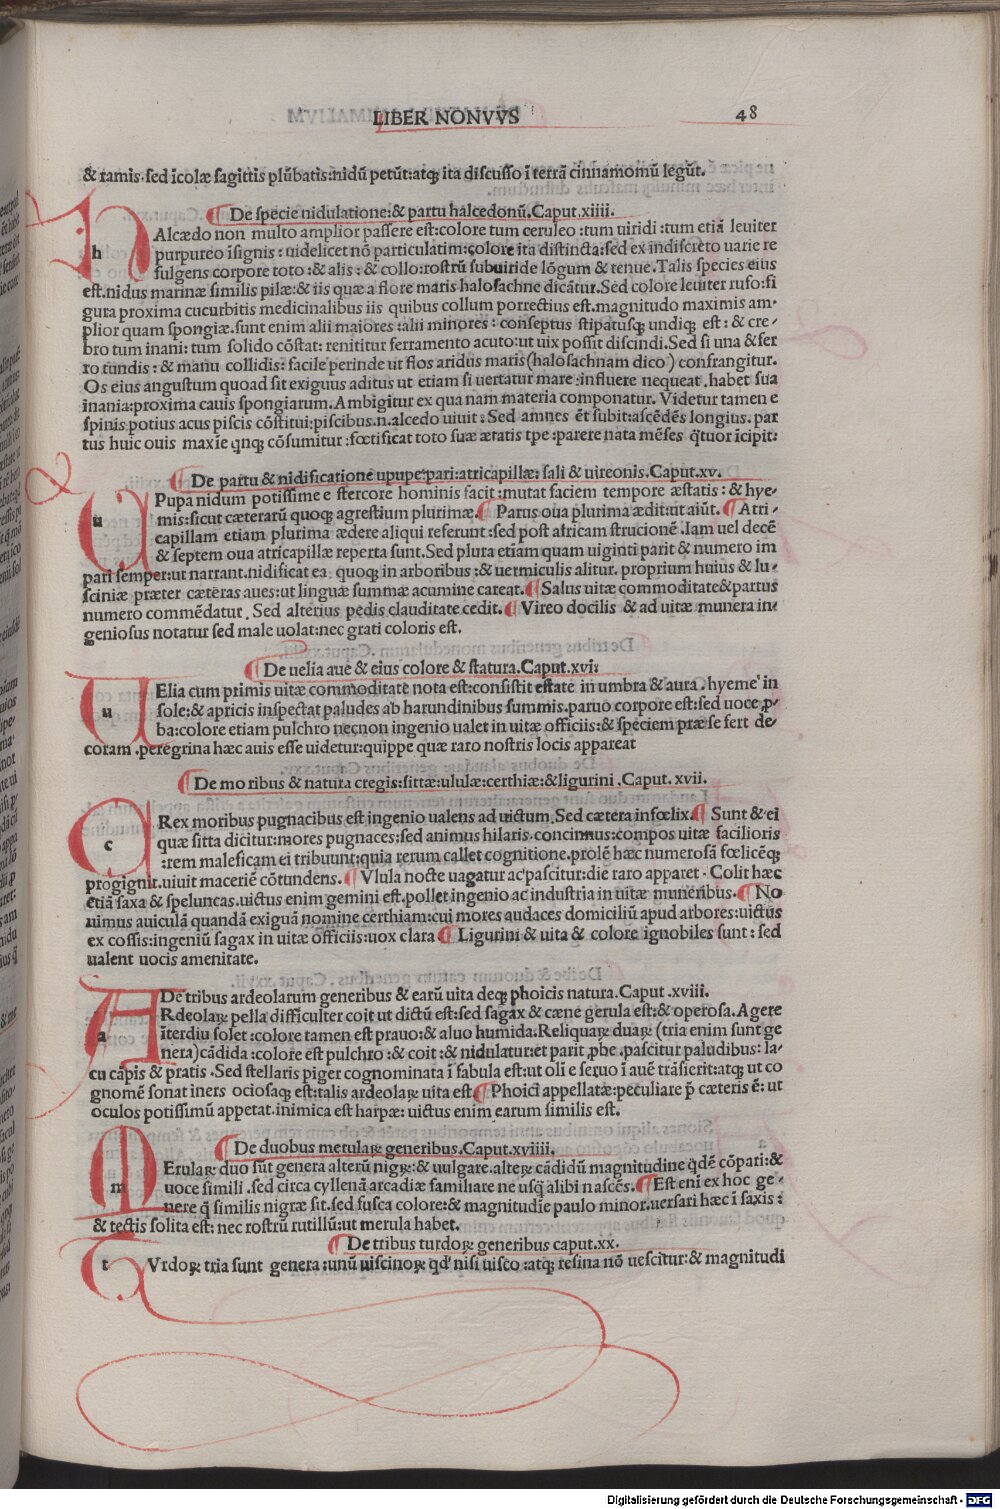 LIBER NONVVS 48
& ramis. sed ĩcolæ sagittis plũbatis: nidũ petũt: atq; ita discusso ĩ terrã cinnamomũ legũt.
De specie nidulatione: & partu halcedonũ. Caput. xiiii.
h Alcædo non multo amplior passere est: colore tum ceruleo: tum uiridi: tum etiã leuiter
purpureo ĩsignis: uidelicet nõ particulatim: colore ita distincta: sed ex indiscreto uarie re
fulgens corpore toto: & alis: & collo: rostrũ subuiride lõgum & tenue. Talis species eius
est. nidus marinæ similis pilæ: & iis quæ a flore maris halosachne dicãtur. Sed colore leuiter rufo: fi
gura proxima cucurbitis medicinalibus iis quibus collum porrectius est. magnitudo maximis am-
plior quam spongiæ. sunt enim alii maiores: alii minores: conseptus stipatusq; undiq; est: & cre-
bro tum inani: tum solido cõstat: renititur ferramento acuto: ut uix possit discindi. Sed si una & fer
ro tundis: & manu collidis: facile perinde ut flos aridus maris (halosachnam dico) confrangitur.
Os eius angustum quoad sit exiguus aditus ut etiam si uertatur mare: influere nequeat. habet sua
inania: proxima cauis spongiarum. Ambigitur ex qua nam materia componatur. Videtur tamen e
spinis potius acus piscis cõstitui: piscibus. n. alcedo uiuit: Sed amnes ẽt subit: ascẽdẽs longius. par
tus huic ouis maxĩe qnq; cõsumitur: fœtificat toto suæ ætatis tpe: parere nata mẽses q̃tuor ĩcipit:
De partu & nidificatione upupe: pari: atricapillæ: sali & uireonis. Caput. xv.
u Pupa nidum potissime e stercore hominis facit: mutat faciem tempore æstatis: & hye-
mis: sicut cæterarũ quoq; agrestium plurimæ. Parus oua plurima ædit: ut aiũt. Atri-
capillam etiam plurima ædere aliqui referunt: sed post africam strucionẽ. Iam uel decẽ
& septem oua atricapillæ reperta sunt. Sed plura etiam quam uiginti parit & numero im
pari semper: ut narrant. nidificat ea quoq; in arboribus: & uermiculis alitur. proprium huius & lu-
sciniæ præter cæteras aues: ut linguæ summæ acumine careat. Salus uitæ commoditate & partus
numero commẽdatur. Sed alterius pedis clauditate cedit. Vireo docilis & ad uitæ munera in-
geniosus notatur sed male uolat: nec grati coloris est.
De uelia aue & eius colore & statura. Caput. xvi:
u Elia cum primis uitæ commoditate nota est: consistit estate in umbra & aura. hyeme in
sole: & apricis inspectat paludes ab harundinibus summis. paruo corpore est: sed uoce p-
ba: colore etiam pulchro necnon ingenio ualet in uitæ officiis: & speciem præ se fert de-
coram. peregrina hæc auis esse uidetur: quippe quæ raro nostris locis appareat
De moribus & natura cregis: sittæ: ululæ: certhiæ: & ligurini. Caput. xvii.
c Rex moribus pugnacibus est ingenio ualens ad uictum. Sed cætera infœlix. Sunt & ei
quæ sitta dicitur: mores pugnaces: sed animus hilaris. concinnus: compos uitæ facilioris
: rem maleficam ei tribuunt: quia rerum callet cognitione. prolẽ hæc numerosã fœlicẽq;
progignit. uiuit maceriẽ cõtundens. Vlula nocte uagatur ac pascitur: die raro apparet. Colit hæc
etiã saxa & speluncas. uictus enim gemini est. pollet ingenio ac industria in uitæ muneribus. No
uimus auiculã quandã exiguã nomine certhiam: cui mores audaces domiciliũ apud arbores: uictus
ex cossis: ingeniũ sagax in uitæ officiis: uox clara Ligurini & uita & colore ignobiles sunt: sed
ualent uocis amenitate.
De tribus ardeolarum generibus & earũ uita deq; phoicis natura. Caput. xviii.
a Rdeolaꝝ pella difficulter coit ut dictũ est: sed sagax & cæne gerula est: & operosa. Agere
ĩterdiu solet: colore tamen est prauo: & aluo humida. Reliquaꝝ duaꝝ (tria enim sunt ge
nera) cãdida: colore est pulchro: & coit: & nidulatur: et parit, pbe. pascitur paludibus: la-
cu cãpis & pratis. Sed stellaris piger cognominata ĩ fabula est: ut oli e seruo ĩ auẽ trãsierit: atq; ut co
gnomẽ sonat iners ociosaq; est: talis ardeolaꝝ uita est. Phoici appellatæ: peculiare p̃ cæteris ẽ: ut
oculos potissimũ appetat. inimica est harpæ: uictus enim earum similis est.
De duobus merulaꝝ generibus. Caput. xviiii.
m Erulaꝝ duo sũt genera alterũ nigꝝ: & uulgare. alteꝝ cãdidũ magnitudine q̃dẽ cõpari: &
uoce simili. sed circa cyllenã arcadiæ familiare ne usq̃ alibi nascẽs. Est eni ex hoc ge-
nere q̃ similis nigræ sit. sed fusca colore: & magnitudie paulo minor. uersari hæc ĩ saxis:
& tectis solita est: nec rostrũ rutillũ: ut merula habet.
De tribus turdoꝝ generibus caput. xx.
t Vrdoꝝ tria sunt genera: unũ uiscinoꝝ qd' nisi uisco: atq; resina nõ uescitur: & magnitudi
Digitalisierung gefördert durch die Deutsche Forschungsgemeinschaft - DFG